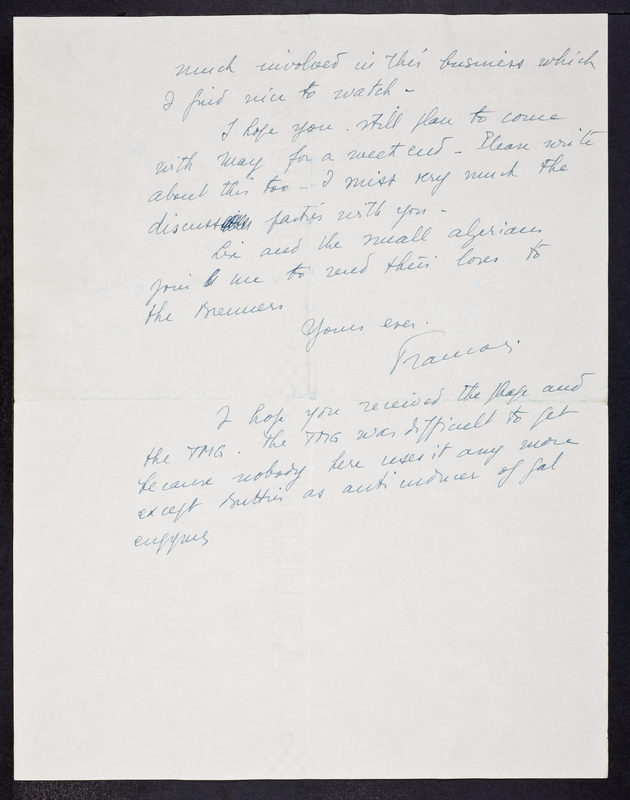 much involved in this business which
I find nice to watch -
I hope you still plan to come
with May for a week end - Please write
about this too - I miss very much the
discuss parties with you -
Lise and the small algerians
join me to send their loves to
the Brenners
Yours ever.
Francois.
I hope you received the phage and
the TMG. The TMG was difficult to get
because nobody here uses it any more
except Buttin as anti inducer of Gal
enzymes